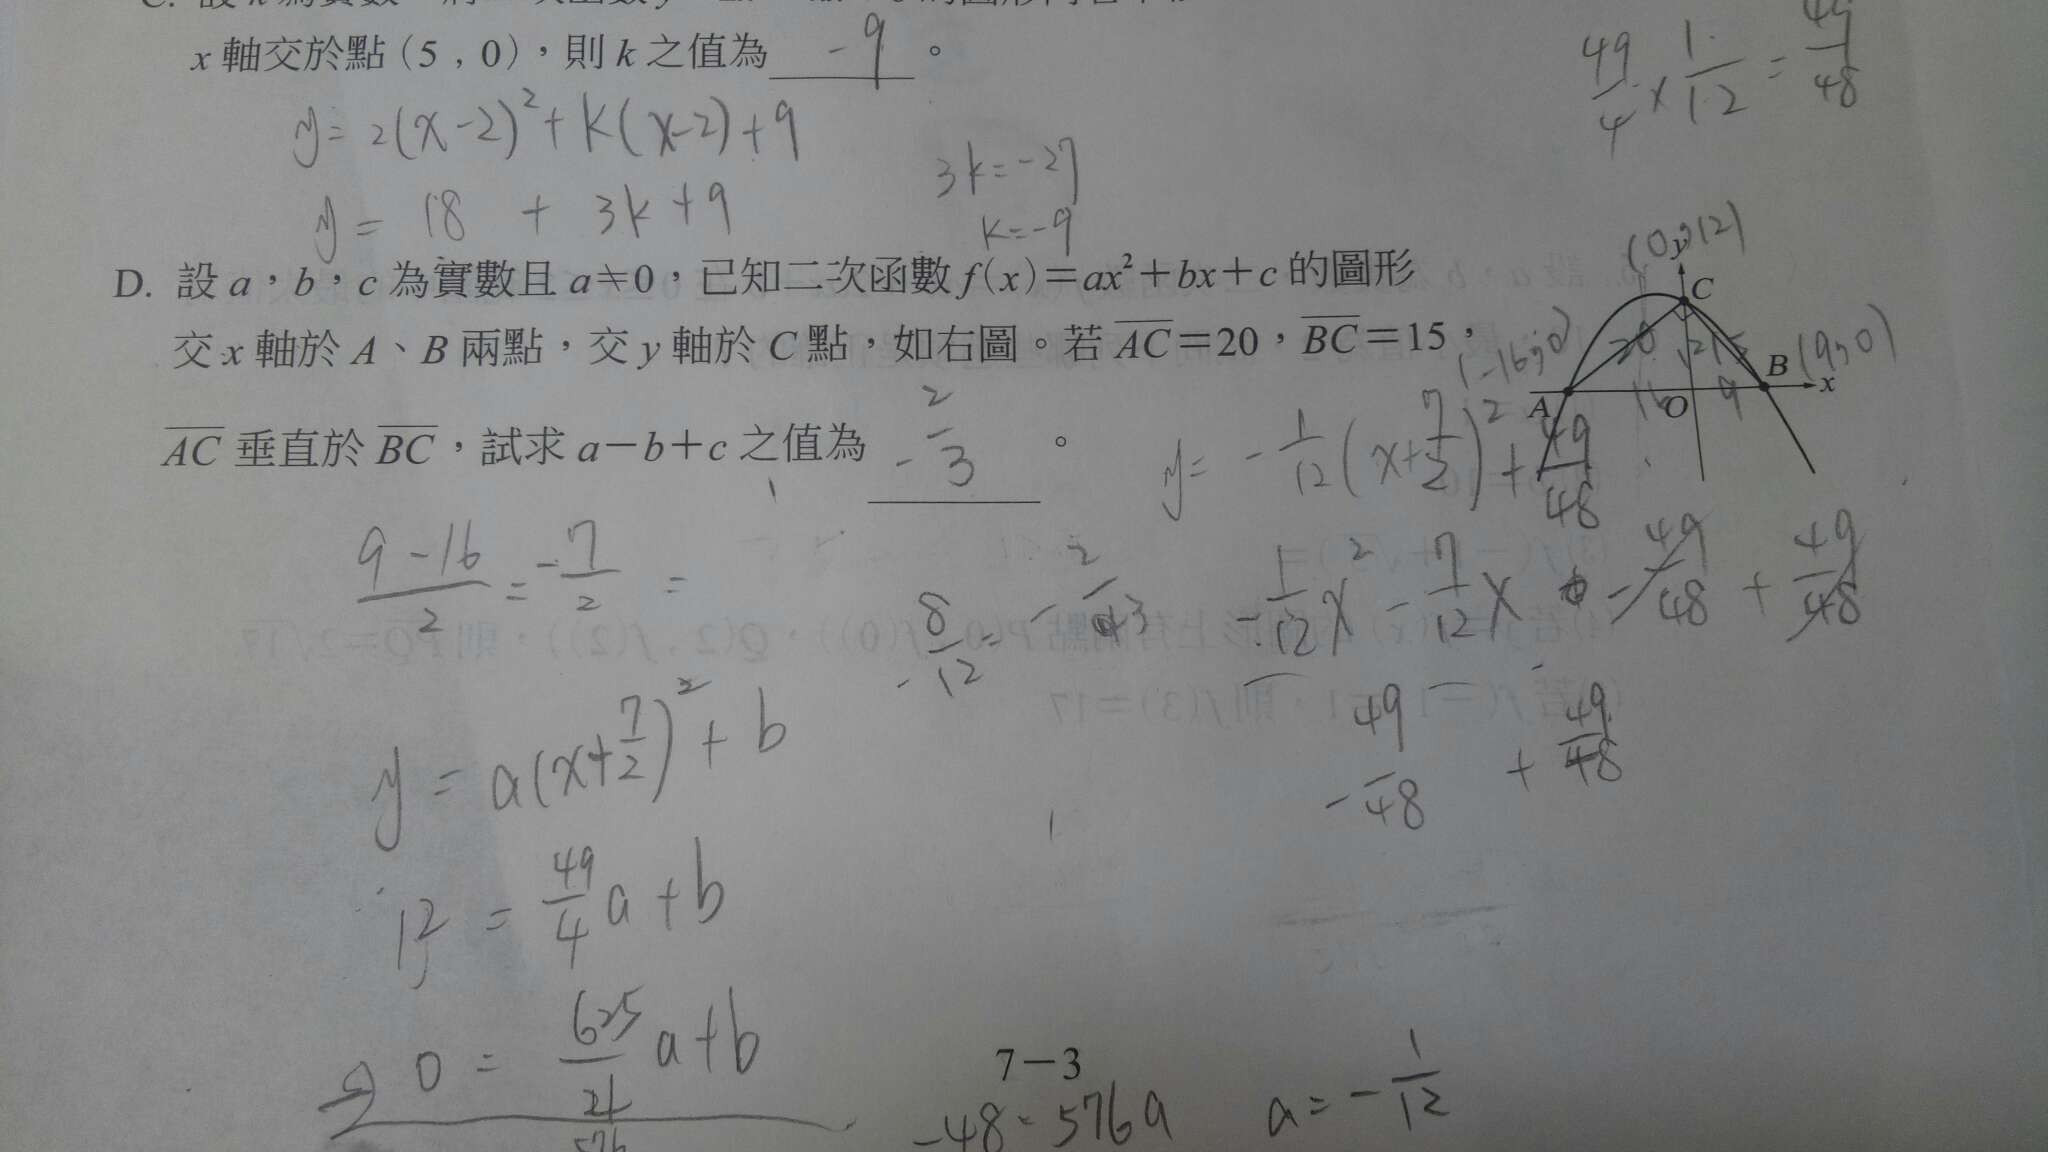 x 軸交於點 (5 , 0)，則 k 之值為 -9 。
49/4 × 1/12 = 49/48
y = 2(x-2)² + k(x-2) + 9
3k = -27
y = 18 + 3k + 9
k = -9
D. 設 a，b，c 為實數且 a≠0，已知二次函數 f(x)＝ax²＋bx＋c 的圖形
交 x 軸於 A、B 兩點，交 y 軸於 C 點，如右圖。若 AC＝20，BC＝15，
AC 垂直於 BC，試求 a－b＋c 之值為 -2/3 。
(0, 12)
y
C
20
12
15
(-16, 0)
B
(9, 0)
x
A
16
O
9
y = -1/12(x+7/2)² + 49/48
(9-16)/2 = -7/2 =
-8/12 = -2/3
-1/12x² - 7/12x - 49/48 + 49/48
-49/48 + 49/48
y = a(x+7/2)² + b
12 = 49/4a + b
0 = 625/4a + b
576
7－3
-48 = 576a
a = -1/12